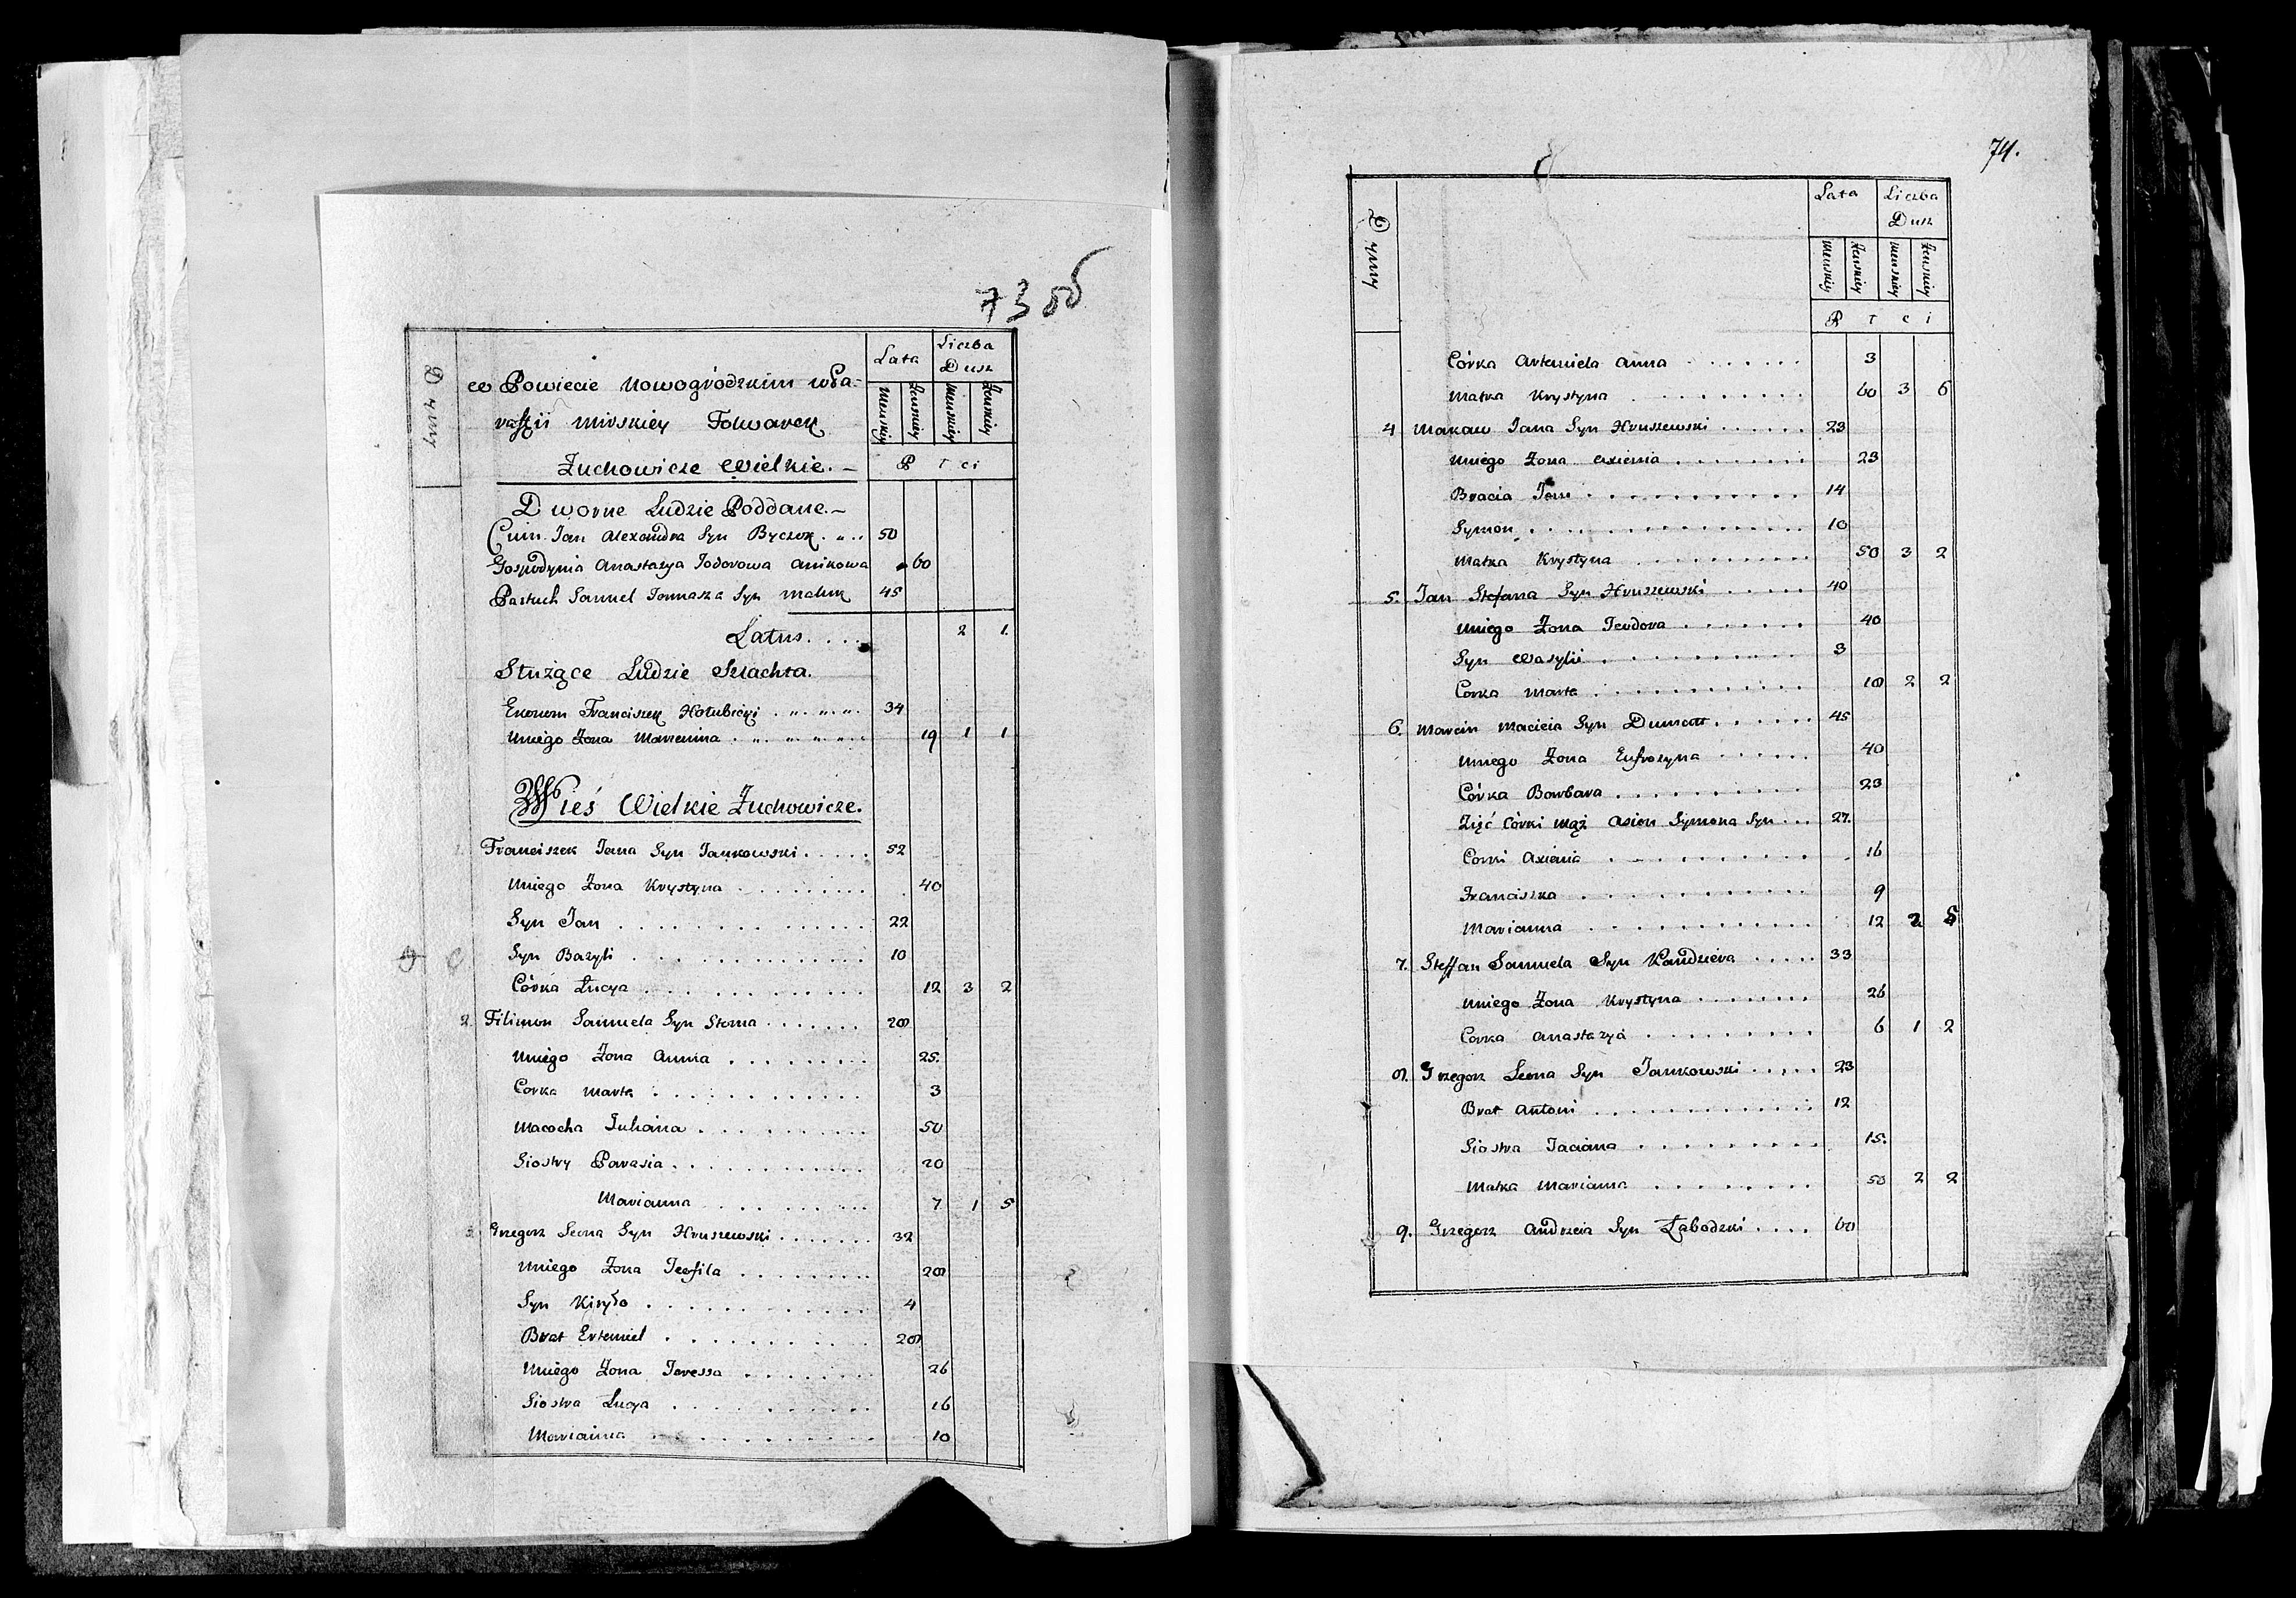 73 об
Dymy
w Powiecie Nowogródzkim w Pa=
rafii Mirskiey Folwarck
Żuchowicze Wielkie.—
Lata
Liczba
Dusz
Męskiey
Żenskiey
Męskiey
Żenskiey
P ł c i
Dworne Ludzie Poddane.—
Ciwn. Jan Alexandra Syn Byczek 50
Gospodynia Anastazya Todorowa Anikowa 60
Pastuch Samuel Tomasza Syn Maluk 45
Latus.... 2 1.
Służące Ludzie Szlachta.
Ekonom Franciszek Hołubicki 34
Uniego Żona Marcenna 19 1 1
Wieś Wielkie Żuchowicze.
1. Franciszek Jana Syn Jankowski 52
Uniego Żona Krystyna 40
Syn Jan 22
Syn Bazyli 10
Córka Łucya 12 3 2
2. Filimon Samuela Syn Słoma 28
Uniego Żona Anna 25.
Corka Marta 3
Macocha Juliana 50
Siostry Parasia 20
Marianna 7 1 5
3. Grzegorz Leona Syn Hruszewski 32
Uniego Żona Teofila 28
Syn Kiryło 4
Brat Ertemiel 28
Uniego Żona Teressa 26
Siostra Łucya 16
Marianna 10
74.
Dymy
Lata
Liczba
Dusz
Męskiey
Żenskiey
Męskiey
Żenskiey
P ł c i
Córka Artemiela Anna 3
Matka Krystyna 60 3 6
4 Makaw Jana Syn Hruszewski 23
Uniego Żona Axienia 23
Bracia Jan 14
Symon 10
Matka Krystyna 50 3 2
5. Jan Stefana Syn Hruszewski 40
Uniego Żona Teodora 40
Syn Wasylii 3
Corka Marta 18 2 2
6. Marcin Macieia Syn 45
Uniego Żona Eufrozyna 40
Córka Barbara 23
Zięć Córki mąż Asion Symona Syn 27.
Corki Axienia 16
Franciszka 9
Marianna 12 2 5
7. Steffan Samuela Syn Kandziera 33
Uniego Żona Krystyna 26
Corka Anastazya 6 1 2
8. Grzegorz Leona Syn Jankowski 23
Brat Antoni 12
Siostra Taciana 15.
Matka Marianna 50 2 2
9. Grzegorz Andrzeia Syn Łabodzki 60